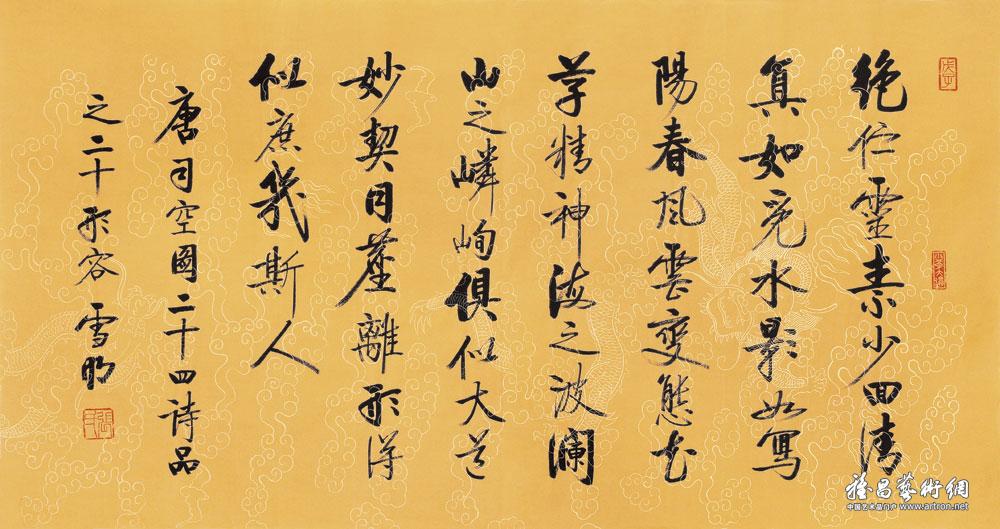 绝伫靈素少囬清
真如觅水影如寫
陽春風雲變態花
草精神海之波澜
山之嶙峋俱似大道
妙契同塵離形得
似庶幾斯人
唐司空圖二十四诗品
之二十形容 雪明
雅昌藝術網
中国艺术品门户 www.artron.net